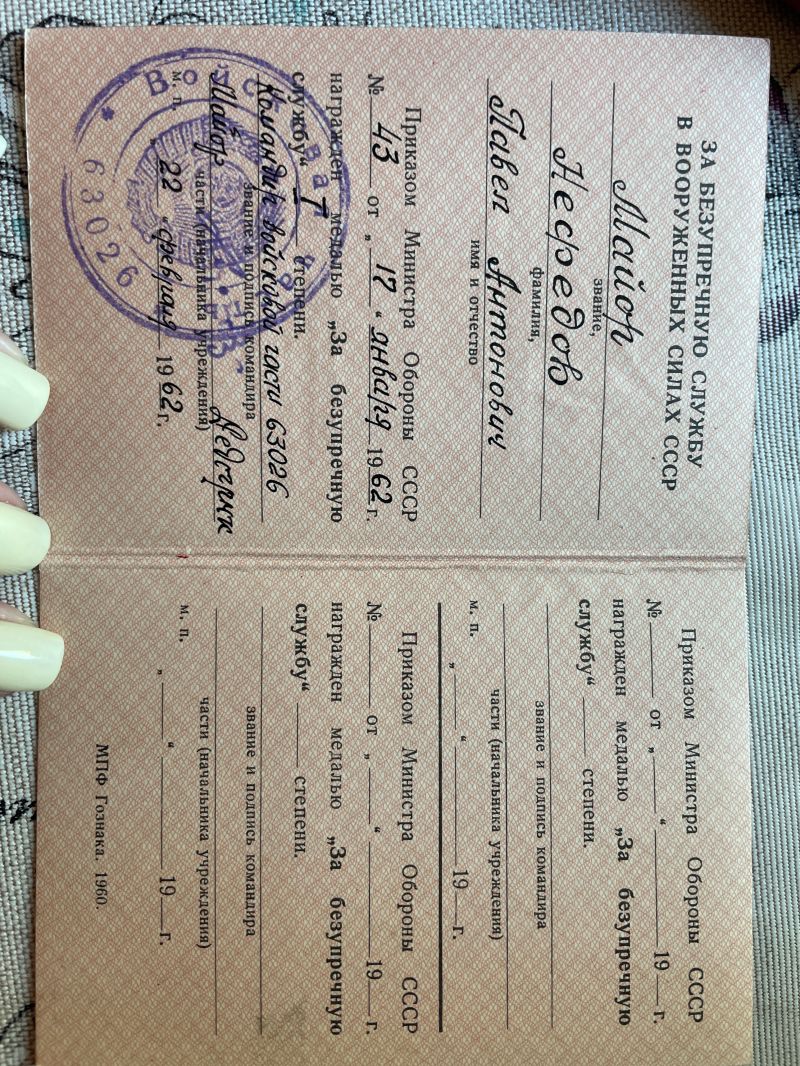 ЗА БЕЗУПРЕЧНУЮ СЛУЖБУ
В ВООРУЖЕННЫХ СИЛАХ СССР
Майор
звание,
Нефедов
фамилия,
Павел Антонович
имя и отчество
Приказом Министра Обороны СССР
№ 43 от „ 17 “ января 1962 г.
награжден медалью „За безупречную
службу“ I степени.
Командир войсковой части 63026
звание и подпись командира
Майор
части (начальника учреждения)
м. п. „ 22 “ февраля 1962 г.
63026
Приказом Министра Обороны СССР
№ от „ “ 19 г.
награжден медалью „За безупречную
службу“ степени.
звание и подпись командира
части (начальника учреждения)
м. п. „ “ 19 г.
Приказом Министра Обороны СССР
№ от „ “ 19 г.
награжден медалью „За безупречную
службу“ степени.
звание и подпись командира
части (начальника учреждения)
м. п. „ “ 19 г.
МПФ Гознака. 1960.